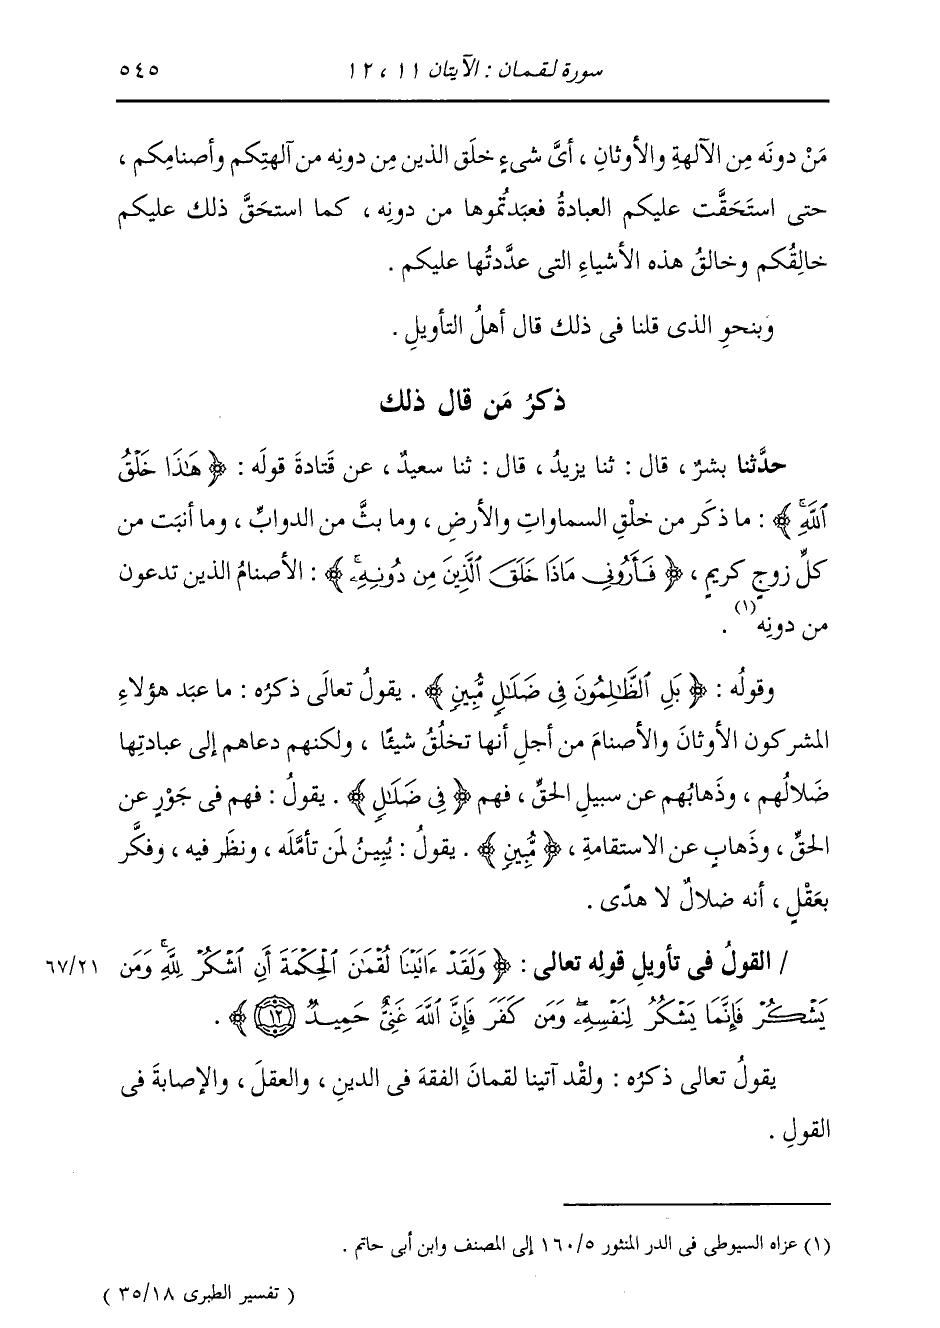 سورة لقمان : الآيتان ١١ ، ١٢ ٥٤٥
مَنْ دونَه مِن الآلهةِ والأوثانِ ، أىَّ شىءٍ خلَق الذين مِن دونِه من آلهتِكم وأصنامِكم ،
حتى استَحَقَّت عليكم العبادةُ فعبَدتُموها من دونِه ، كما استحَقَّ ذلك عليكم
خالِقُكم وخالقُ هذه الأشياءِ التى عدَّدتُها عليكم .
وَبنحوِ الذى قلنا فى ذلك قال أهلُ التأويلِ .
ذكرُ مَن قال ذلك
حدَّثنا بشرٌ ، قال : ثنا يزيدُ ، قال : ثنا سعيدٌ ، عن قَتادةَ قولَه : ﴿ هَٰذَا خَلْقُ
ٱللَّهِ ۚ ﴾ : ما ذكَر من خلْقِ السماواتِ والأرضِ ، وما بثَّ من الدوابِّ ، وما أنبَت من
كلِّ زوجٍ كريمٍ ، ﴿ فَأَرُونِى مَاذَا خَلَقَ ٱلَّذِينَ مِن دُونِهِۦ ۚ ﴾ : الأصنامُ الذين تدعون
من دونِه(١) .
وقولُه : ﴿ بَلِ ٱلظَّٰلِمُونَ فِى ضَلَٰلٍ مُّبِينٍ ﴾ . يقولُ تعالَى ذكرُه : ما عبَد هؤلاءِ
المشركون الأوثانَ والأصنامَ من أجلِ أنها تخلُقُ شيئًا ، ولكنهم دعاهم إلى عبادتِها
ضَلالُهم ، وذَهابُهم عن سبيلِ الحقِّ ، فهم ﴿ فِى ضَلَٰلٍ ﴾ . يقولُ : فهم فى جَوْرٍ عن
الحقِّ ، وذَهابٍ عن الاستقامةِ ، ﴿ مُّبِينٍ ﴾ . يقولُ : يُبِينُ لمَن تأمَّلَه ، ونظَر فيه ، وفكَّر
بعَقْلٍ ، أنه ضلالٌ لا هدًى .
/ القولُ فى تأويلِ قولِه تعالى : ﴿ وَلَقَدْ ءَاتَيْنَا لُقْمَٰنَ ٱلْحِكْمَةَ أَنِ ٱشْكُرْ لِلَّهِ ۚ وَمَن ٦٧/٢١
يَشْكُرْ فَإِنَّمَا يَشْكُرُ لِنَفْسِهِۦ ۖ وَمَن كَفَرَ فَإِنَّ ٱللَّهَ غَنِىٌّ حَمِيدٌ ١٢ ﴾ .
يقولُ تعالى ذكرُه : ولقْد آتينا لقمانَ الفقهَ فى الدينِ ، والعقلَ ، والإصابةَ فى
القولِ .
(١) عزاه السيوطى فى الدر المنثور ١٦٠/٥ إلى المصنف وابن أبى حاتم .
( تفسير الطبرى ٣٥/١٨ )